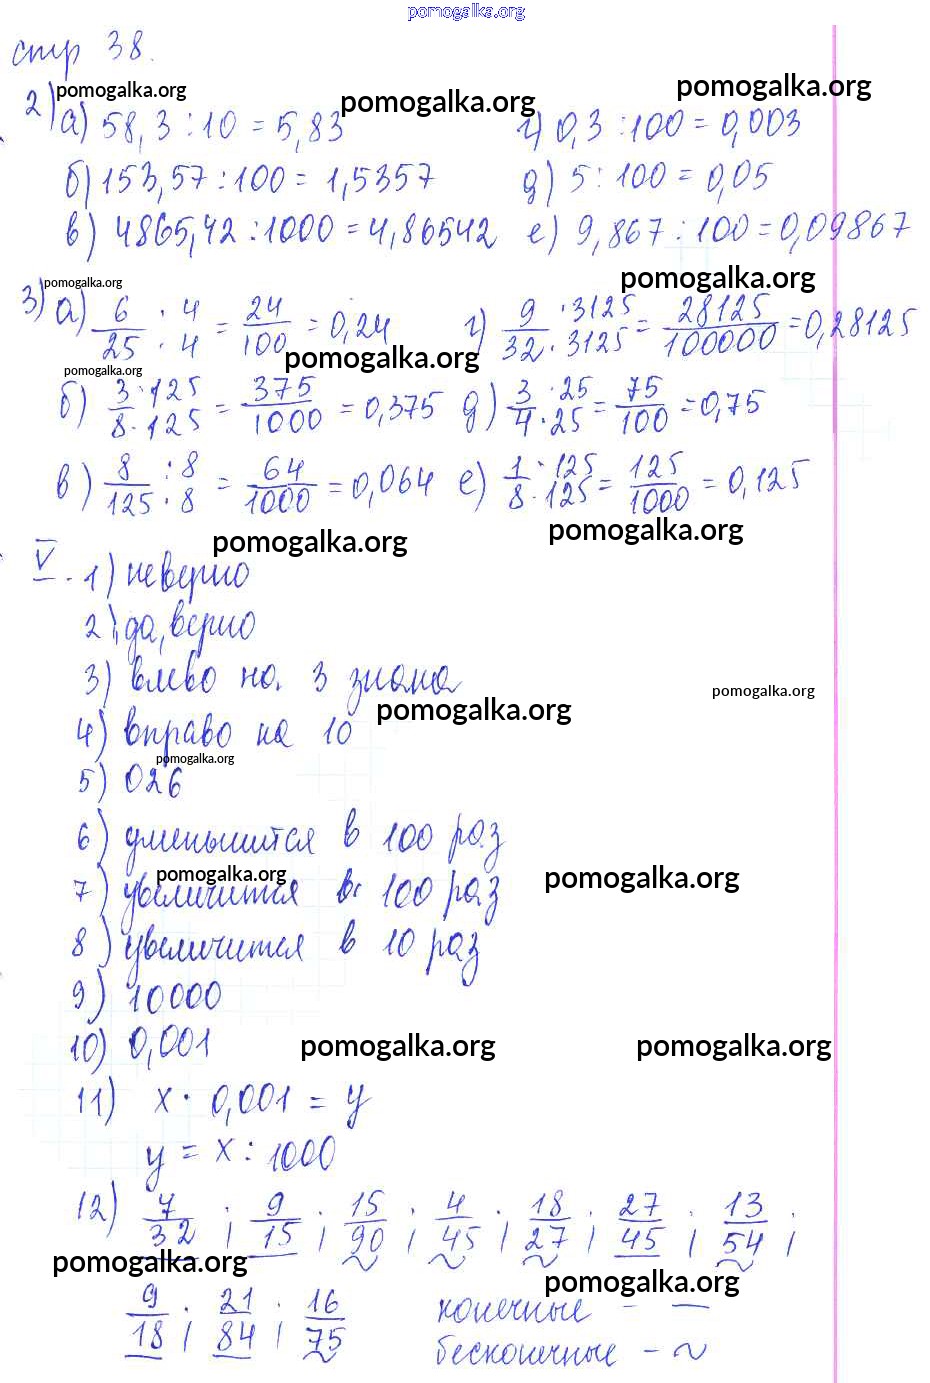 pomogalka.org
стр 38.
pomogalka.org pomogalka.org pomogalka.org
2) а) 58,3 : 10 = 5,83 г) 0,3 : 100 = 0,003
б) 153,57 : 100 = 1,5357 д) 5 : 100 = 0,05
в) 4865,42 : 1000 = 4,86542 е) 9,867 : 100 = 0,09867
pomogalka.org pomogalka.org
3) а) 6/25 · 4/4 = 24/100 = 0,24 г) 9/32 · 3125/3125 = 28125/100000 = 0,28125
pomogalka.org pomogalka.org
б) 3/8 · 125/125 = 375/1000 = 0,375 д) 3/4 · 25/25 = 75/100 = 0,75
в) 8/125 · 8/8 = 64/1000 = 0,064 е) 1/8 · 125/125 = 125/1000 = 0,125
pomogalka.org pomogalka.org
V. 1) неверно
2) да, верно
3) влево на 3 знака
pomogalka.org pomogalka.org
4) вправо на 10
pomogalka.org
5) 026
6) уменьшится в 100 раз
pomogalka.org pomogalka.org
7) увеличится в 100 раз
8) увеличится в 10 раз
9) 10000
10) 0,001
pomogalka.org pomogalka.org
11) x · 0,001 = y
y = x : 1000
12) 7/32 ; 9/15 ; 15/90 ; 4/45 ; 18/27 ; 27/45 ; 13/54 ;
pomogalka.org pomogalka.org
9/18 ; 21/84 ; 16/75 конечные - —
бесконечные - ~